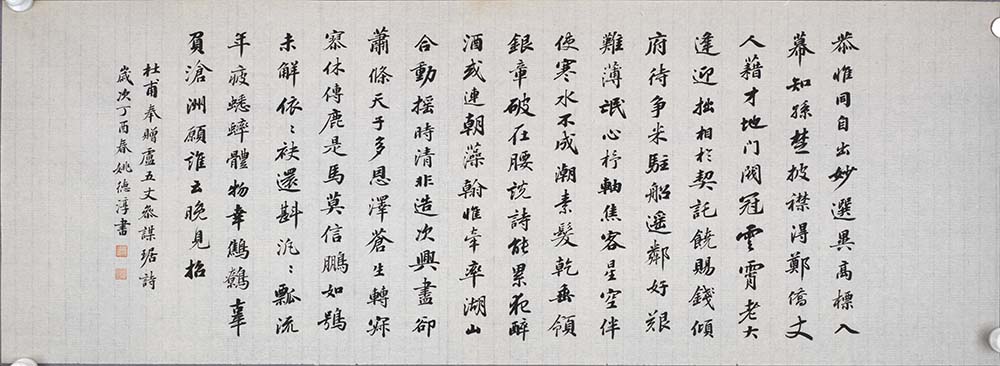 恭惟同自出妙選異高標入
幕知孫楚披襟得鄭僑丈
人藉才地門閥冠雲霄老大
逢迎拙相於契託饒賜錢傾
府待爭米駐船遥鄰好艱
難薄氓心杼軸焦客星空伴
使寒水不成潮素髮乾垂領
銀章破在腰說詩能累夜醉
酒或連朝藻翰惟牽率湖山
合動搖時清非造次興盡卻
蕭條天子多恩澤蒼生轉寂
寥休傳鹿是馬莫信鵬如鴞
未解依〻袂還斟汎〻瓢流
年疲蟋蟀體物幸鷦鷯辜
負滄洲願誰云晚見招
杜甫奉贈盧五丈參謀琚詩
歲次丁酉春姚德淳書